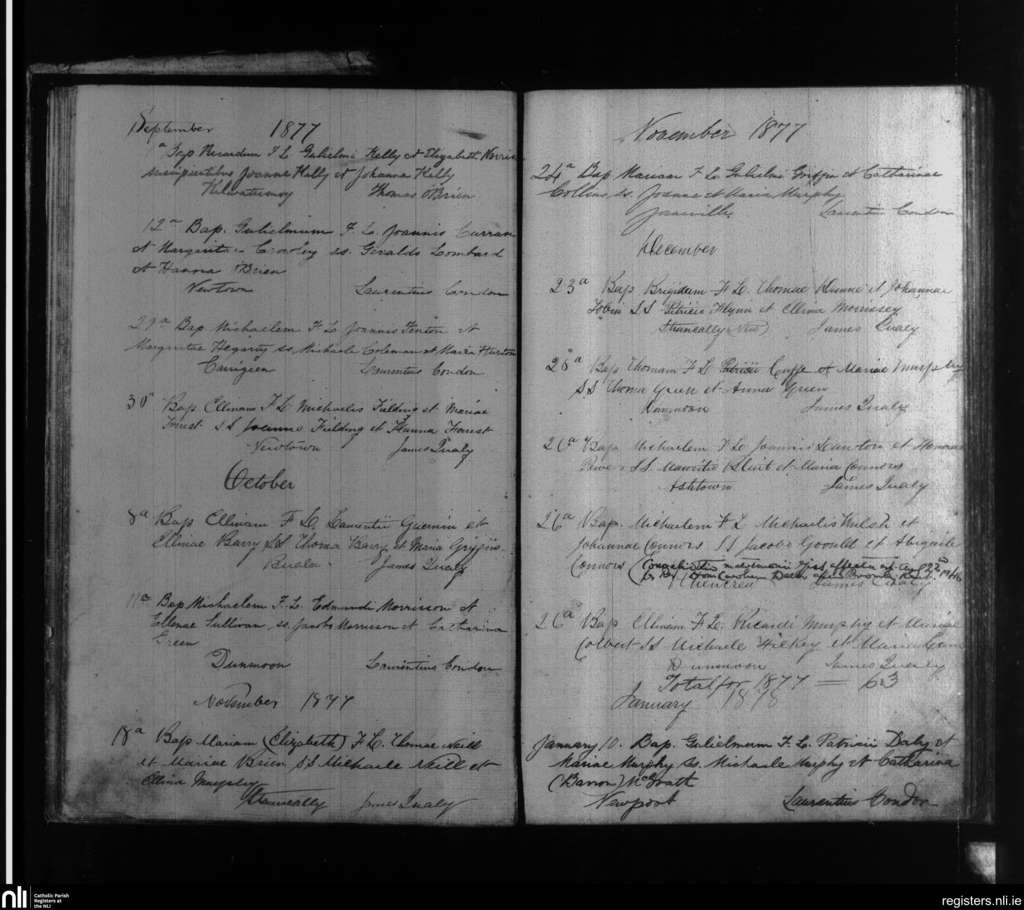 September 1877
Bap Ricardum F L Gulielmi Kelly et Elizabeth Norris
Joanne Kelly et Johanna Kelly
Kilwatermoy Thomas O'Brien
12a Bap. Gulielmum F. L. Joannis Curran
et Margarita Crowley ss. Geraldo Lombard
et Hanora O'Brien
Newtown Laurentius Condon
29a Bap. Michaelem F L Joannis Fenton et
Margaritae Hegarty ss. Michaele Coleman et Maria
Carrigeen Laurentius Condon
30a Bap Ellinam F L Michaelis Fielding et Mariae
Forrest SS Joanne Fielding et Hanna Forrest
Newtown James Qualy
October
8a Bap Ellinam F L Laurentii Guerin et
Ellinae Barry SS Thoma Barry et Maria Griffin
James Qualy
11a Bap Michaelem F. L. Edmundi Morrisson et
Ellenae Sullivan, ss. Jacobo Morrisson et Catharina
Green
Dunmoon Laurentius Condon
November 1877
18a Bap Mariam (Elizabeth) F L Thomae Neill
et Mariae Brien SS Michaele Neill et
Ellina
Strancally James Qualy
November 1877
24a Bap. Mariam F L Gulielmi Griffin et Catharinae
Collins, ss. Joanne et Maria Murphy
Janeville Laurentius Condon
December
23a Bap Brigidam F L Thomae et Johannae
Tobin SS Patricio Flynn et Ellina Morrissey
Strancally (New) James Qualy
26a Bap Thomam F L Patricii Cuffe et Mariae Murphy
SS Thoma Green et Anna Green
James Qualy
26a Bap Michaelem F L Joannis et Honorae
Power SS et Maria Connors
Ashtown James Qualy
26a Bap. Michaelem F L Michaelis Walsh et
Johannae Connors SS Jacobo Goould et Abigaile
Connors
James Qualy
26a Bap Ellinam F L Ricardi Murphy et Mariae
Colbert SS Michaele Hickey et Maria
Dunmoon James Qualy
Total for 1877 = 63
January 1878
January 10. Bap. Gulielmum F. L. Patricii Daly et
Mariae Murphy ss. Michaele Murphy et Catharina
(Barron) McGrath
Newport Laurentius Condon
nli
Catholic Parish
Registers at
the NLI
registers.nli.ie